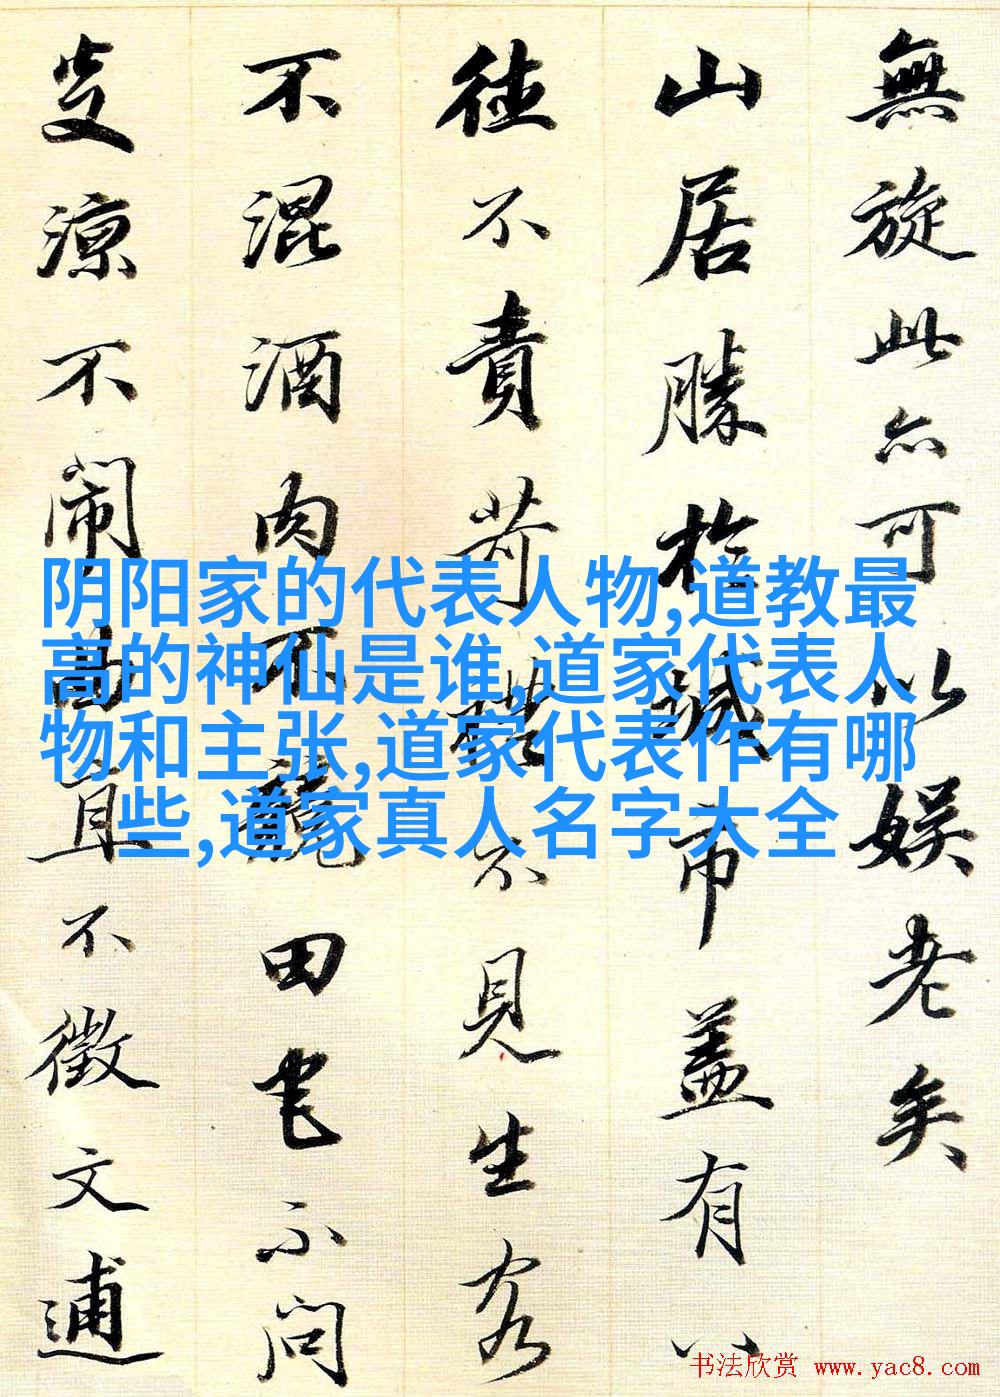 無旋此亦可以娱老矣
山居勝於城市盖有八
德不責苛禮不見生客
不混酒肉不競田宅不問
炎凉不闹曲直不徵文逋
阴阳家的代表人物,道教最
高的神仙是谁,道家代表人
物和主张,道家代表作有哪
些,道家真人名字大全
书法欣赏 www.yac8.com